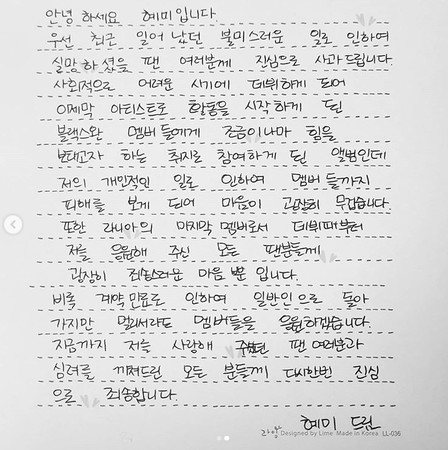 안녕 하세요 혜미입니다.
우선 최근 일어 났던 불미스러운 일로 인하여
실망하셨을 팬 여러분께 진심으로 사과 드립니다.
사회적으로 어려운 시기에 데뷔하게 되어
이제막 아티스트로 활동을 시작하게 된
블랙스완 멤버들에게 조금이나마 힘을
보태고자 하는 취지로 참여하게 된 앨범인데
저의 개인적인 일로 인하여 멤버들까지
피해를 보게 되어 마음이 굉장히 무겁습니다.
또한 라니아의 마지막 멤버로서 데뷔때부터
저를 응원해 주신 모든 팬분들께
굉장히 죄송스러운 마음 뿐 입니다.
비록 계약만료로 인하여 일반인으로 돌아
가지만 멀리서라도 멤버들을 응원하겠습니다.
지금까지 저를 사랑해 주셨던 팬 여러분과
심려를 끼쳐드린 모든 분들께 다시한번 진심
으로 죄송합니다.
혜미 드림
라임 Designed by Lime Made in Korea LL-036